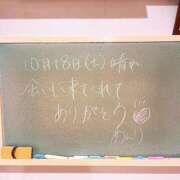 10月18日(土)晴れ
会いに来てくれて
ありがとう